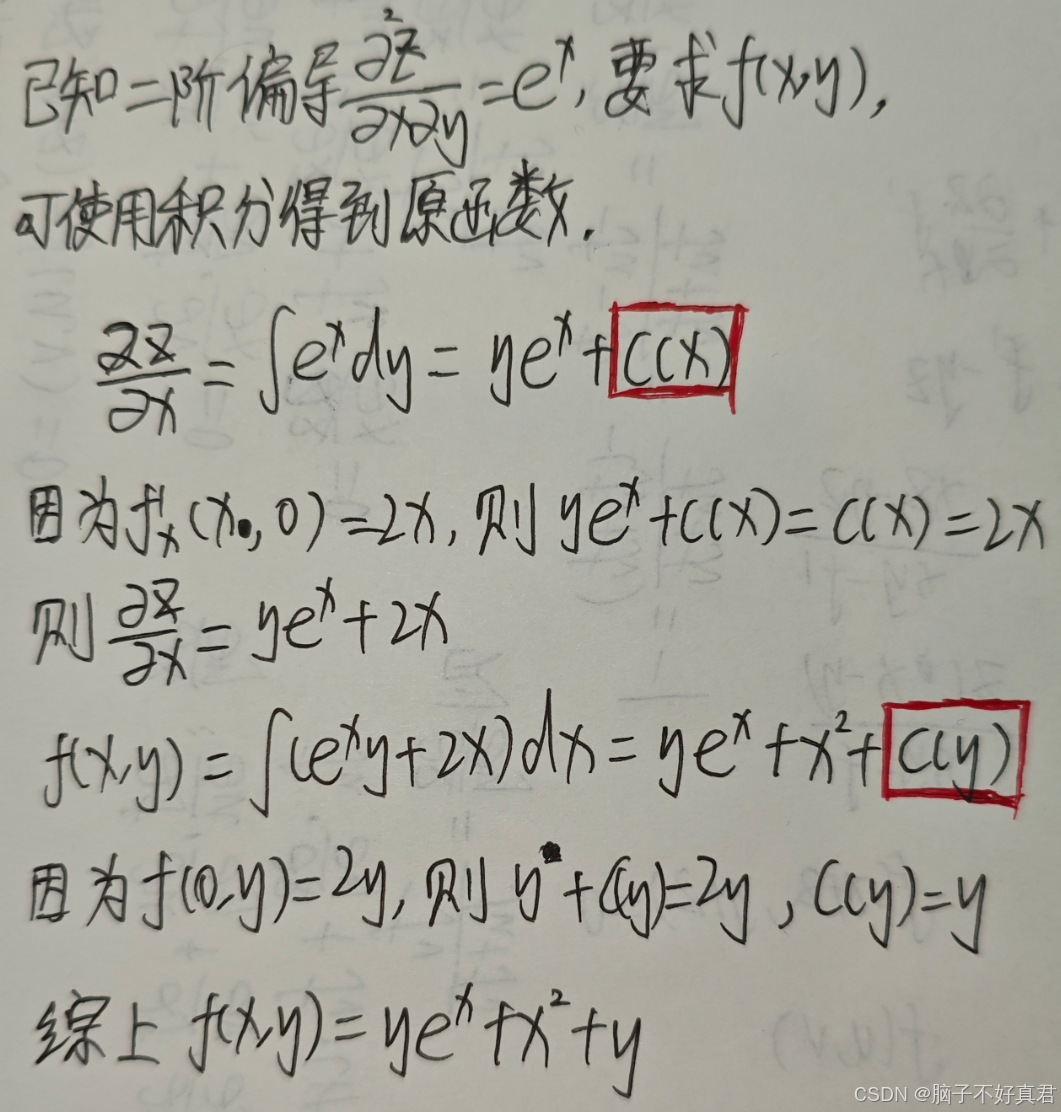 已知二阶偏导∂²z/∂x∂y=eˣ,要求f(x,y),
可使用积分得到原函数.
∂z/∂x=∫eˣdy=yeˣ+C(x)
因为f'ₓ(x,0)=2x,则yeˣ+C(x)=C(x)=2x
则∂z/∂x=yeˣ+2x
f(x,y)=∫(eˣy+2x)dx=yeˣ+x²+C(y)
因为f(0,y)=2y,则y+C(y)=2y,C(y)=y
综上f(x,y)=yeˣ+x²+y
CSDN @脑子不好真君